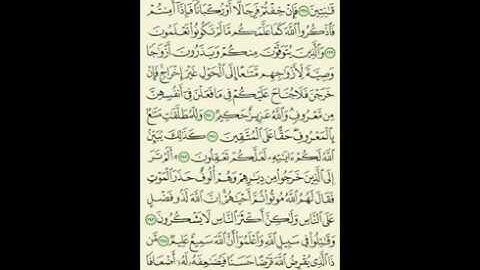 قَٰنِتِينَ ۝٢٣٨ فَإِنْ خِفْتُمْ فَرِجَالًا أَوْ رُكْبَانًا فَإِذَآ أَمِنتُمْ
فَٱذْكُرُوا۟ ٱللَّهَ كَمَا عَلَّمَكُم مَّا لَمْ تَكُونُوا۟ تَعْلَمُونَ
۝٢٣٩ وَٱلَّذِينَ يُتَوَفَّوْنَ مِنكُمْ وَيَذَرُونَ أَزْوَٰجًا
وَصِيَّةً لِّأَزْوَٰجِهِم مَّتَٰعًا إِلَى ٱلْحَوْلِ غَيْرَ إِخْرَاجٍ فَإِنْ
خَرَجْنَ فَلَا جُنَاحَ عَلَيْكُمْ فِى مَا فَعَلْنَ فِىٓ أَنفُسِهِنَّ
مِن مَّعْرُوفٍ وَٱللَّهُ عَزِيزٌ حَكِيمٌ ۝٢٤٠ وَلِلْمُطَلَّقَٰتِ مَتَٰعٌۢ
بِٱلْمَعْرُوفِ حَقًّا عَلَى ٱلْمُتَّقِينَ ۝٢٤١ كَذَٰلِكَ يُبَيِّنُ
ٱللَّهُ لَكُمْ ءَايَٰتِهِۦ لَعَلَّكُمْ تَعْقِلُونَ ۝٢٤٢ ۞ أَلَمْ تَرَ
إِلَى ٱلَّذِينَ خَرَجُوا۟ مِن دِيَٰرِهِمْ وَهُمْ أُلُوفٌ حَذَرَ ٱلْمَوْتِ
فَقَالَ لَهُمُ ٱللَّهُ مُوتُوا۟ ثُمَّ أَحْيَٰهُمْ إِنَّ ٱللَّهَ لَذُو فَضْلٍ
عَلَى ٱلنَّاسِ وَلَٰكِنَّ أَكْثَرَ ٱلنَّاسِ لَا يَشْكُرُونَ ۝٢٤٣
وَقَٰتِلُوا۟ فِى سَبِيلِ ٱللَّهِ وَٱعْلَمُوٓا۟ أَنَّ ٱللَّهَ سَمِيعٌ عَلِيمٌ ۝٢٤٤ مَّن
ذَا ٱلَّذِى يُقْرِضُ ٱللَّهَ قَرْضًا حَسَنًا فَيُضَٰعِفَهُۥ لَهُۥٓ أَضْعَافًا